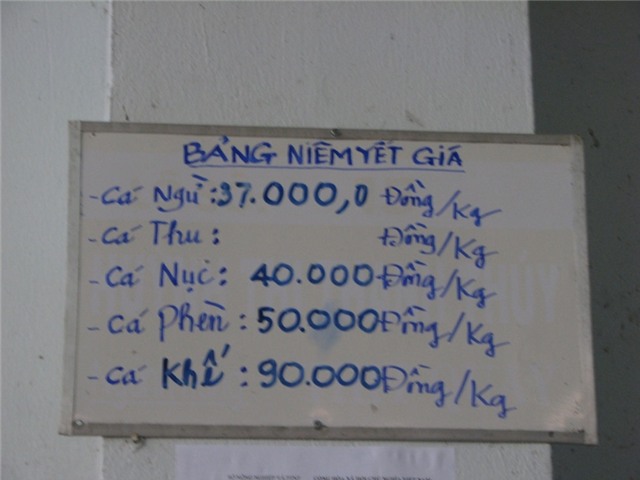 BẢNG NIÊM YẾT GIÁ
- Cá Ngừ: 37.000,0 Đồng/Kg
- Cá Thu: Đồng/Kg
- Cá Nục: 40.000 Đồng/Kg
- Cá Phèn: 50.000 Đồng/Kg
- Cá Khế: 90.000 Đồng/Kg